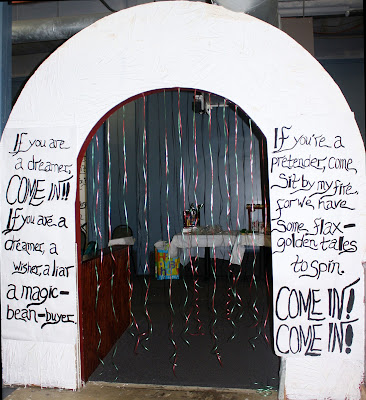 If you are
a dreamer,
COME IN!!
If you are a
dreamer, a
wisher, a liar
a magic-
bean-buyer.
If you're a
pretender, come
Sit by my fire
for we have
Some flax-
golden tales
to spin.
COME IN!
COME IN!